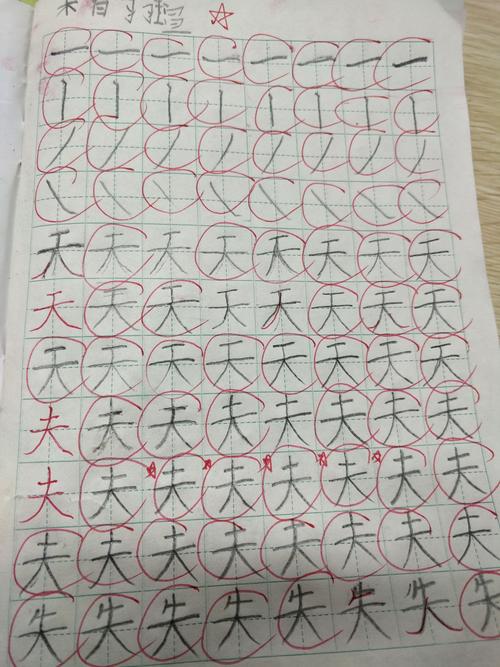 一 一 一 一 一 一 一 一
丨 丨 丨 丨 丨 丨 丨 丨
丿 丿 丿 丿 丿 丿 丿 丿
㇏ ㇏ ㇏ ㇏ ㇏ ㇏ ㇏ ㇏
天 天 天 天 天 天 天 天
天 天 天 天 天 天 天 天
天 天 天 天 天 天 天 天
夫 夫 夫 夫 夫 夫 夫 夫
夫 夫 夫 夫 夫 夫 夫 夫
夫 夫 夫 夫 夫 夫 夫 夫
失 失 失 失 失 失 失 失